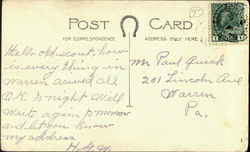 POST CARD
FOR CORRESPONDENCE
ADDRESS ONLY HERE
Hello old scout, how
is every thing in
Warren arrived all
O.K. to night Will
write again tomorrow
and let you know
my address
H.G.W.
Mr Paul Quick
201 Lincoln Ave
Warren
Pa.